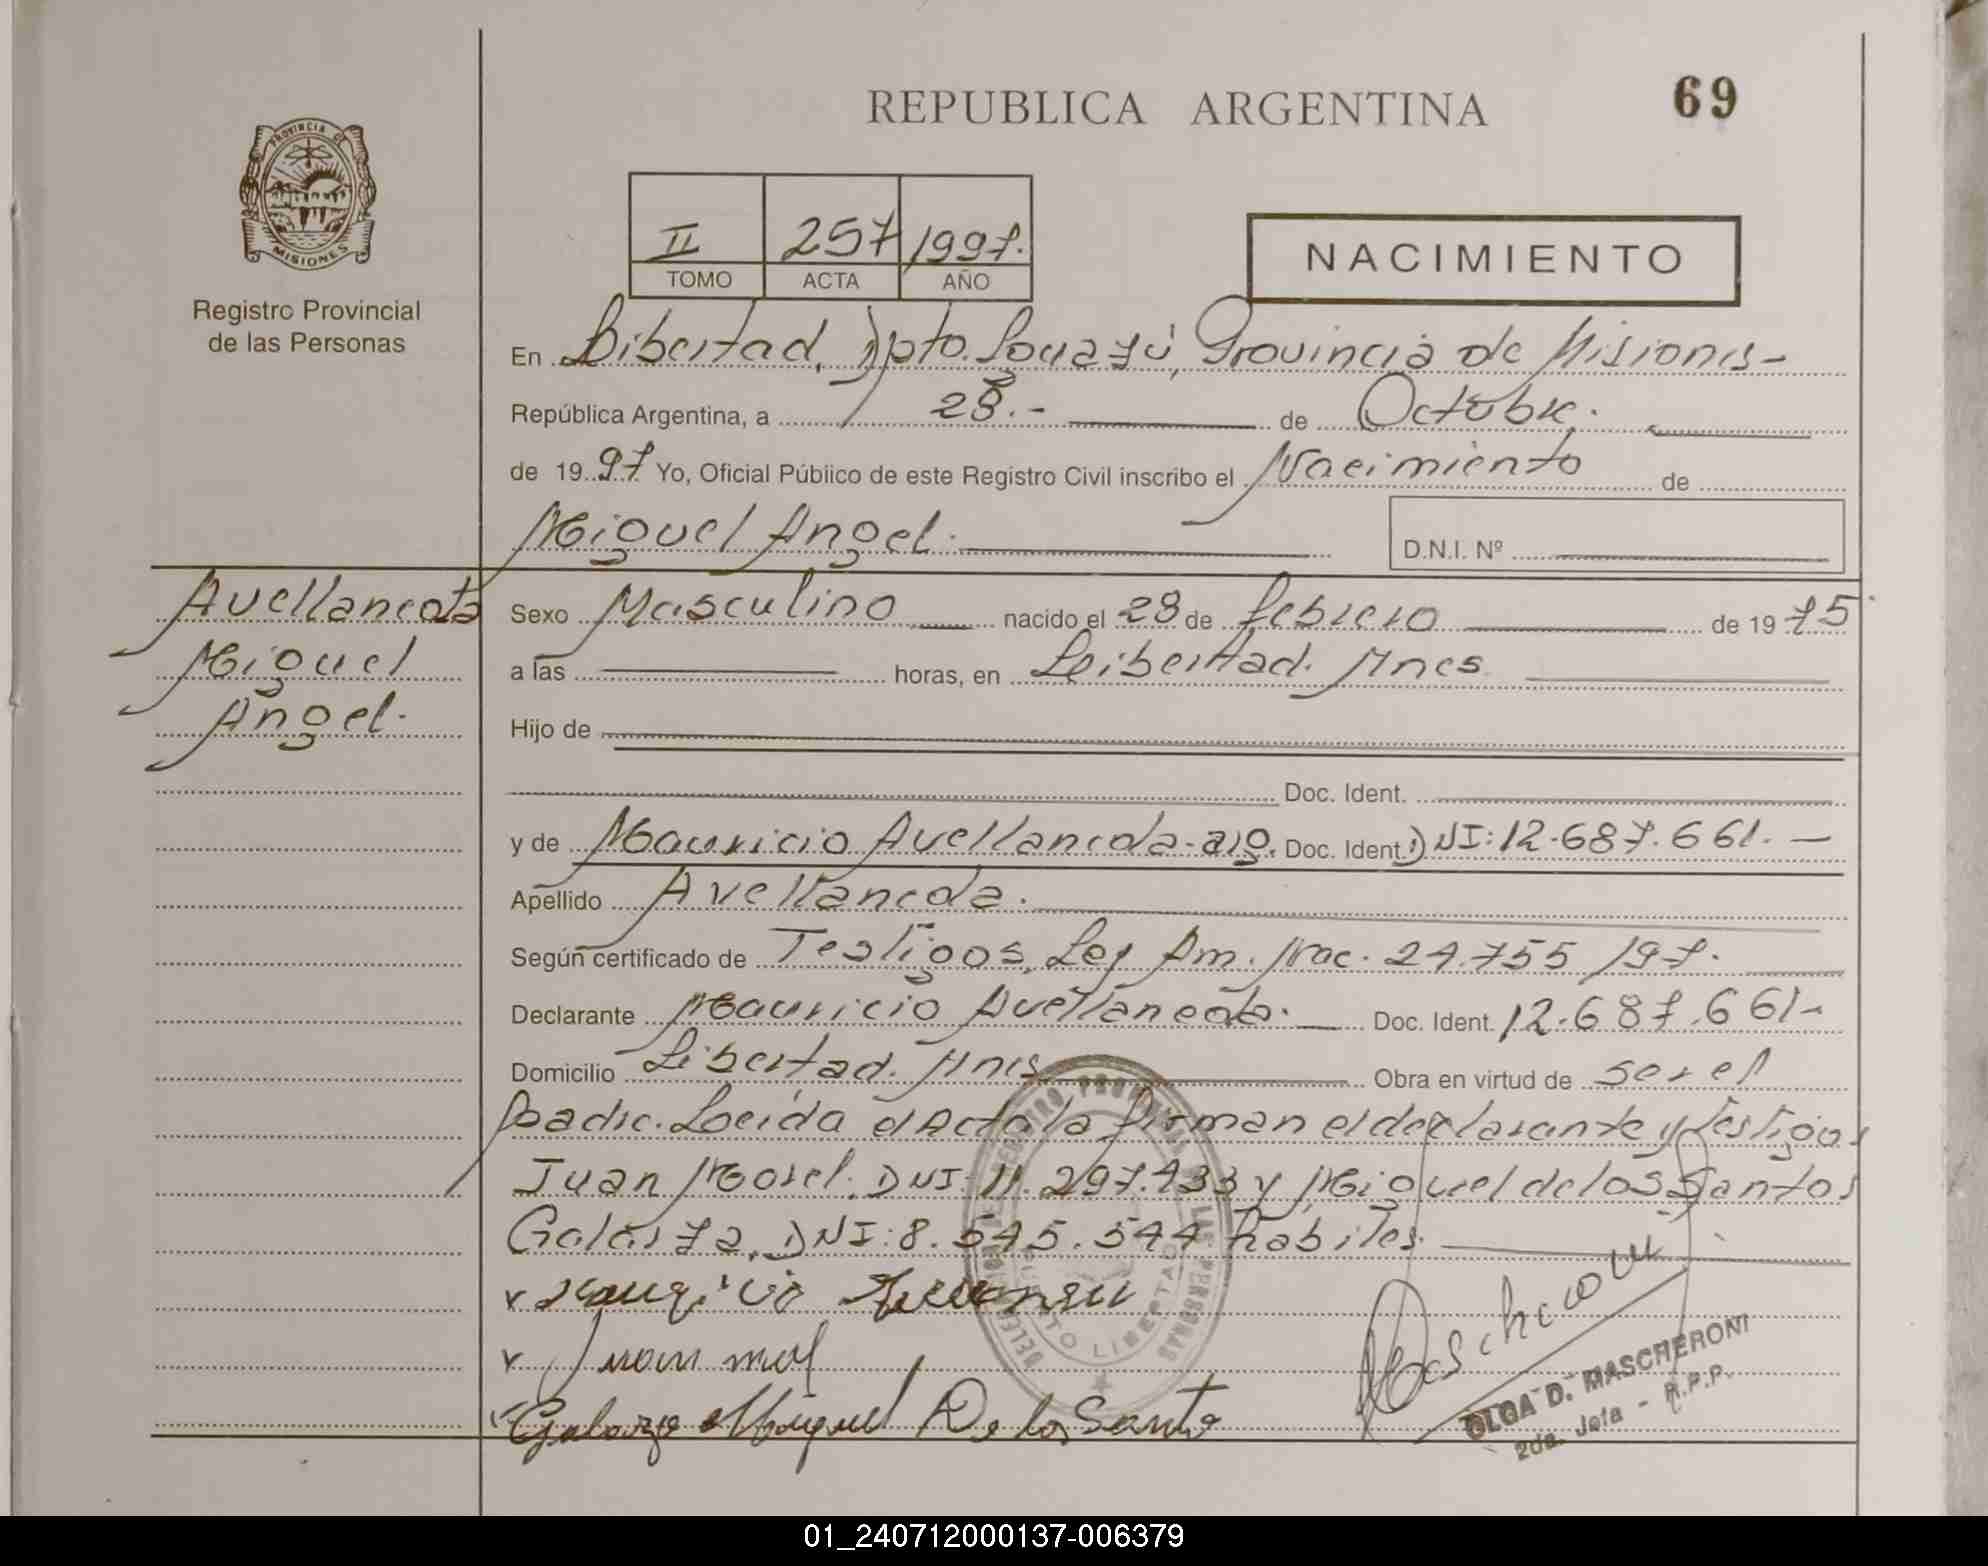 REPUBLICA ARGENTINA
69
PROVINCIA DE
MISIONES
Registro Provincial
de las Personas
II 257 1997.
TOMO ACTA AÑO
NACIMIENTO
En Libertad, Dpto. Iguazú, Provincia de Misiones-
República Argentina, a 28.- de Octubre.
de 1997 Yo, Oficial Público de este Registro Civil inscribo el Nacimiento de
Miguel Angel. D.N.I. Nº
Avellaneda
Miguel
Angel.
Sexo Masculino nacido el 28 de febrero de 1975
a las horas, en Libertad. Mnes
Hijo de
Doc. Ident.
y de Mauricio Avellaneda-arg. Doc. Ident. DNI: 12.687.661.-
Apellido Avellaneda.
Según certificado de Testigos, Ley Am. Nac. 24.755/97.
Declarante Mauricio Avellaneda. Doc. Ident. 12.687.661-
Domicilio Libertad. Mnes Obra en virtud de ser el
Padre. Leída el Acta la firman el declarante y testigos
Juan Morel. DNI: 11.297.433 y Miguel de los Santos
Galarza. DNI: 8.545.544 habiles.
Juan
Galarza Miguel De los Santo
Mascheroni
OLGA D. MASCHERONI
2da. Jefa - R.P.P.
LIBERTAD
01_240712000137-006379